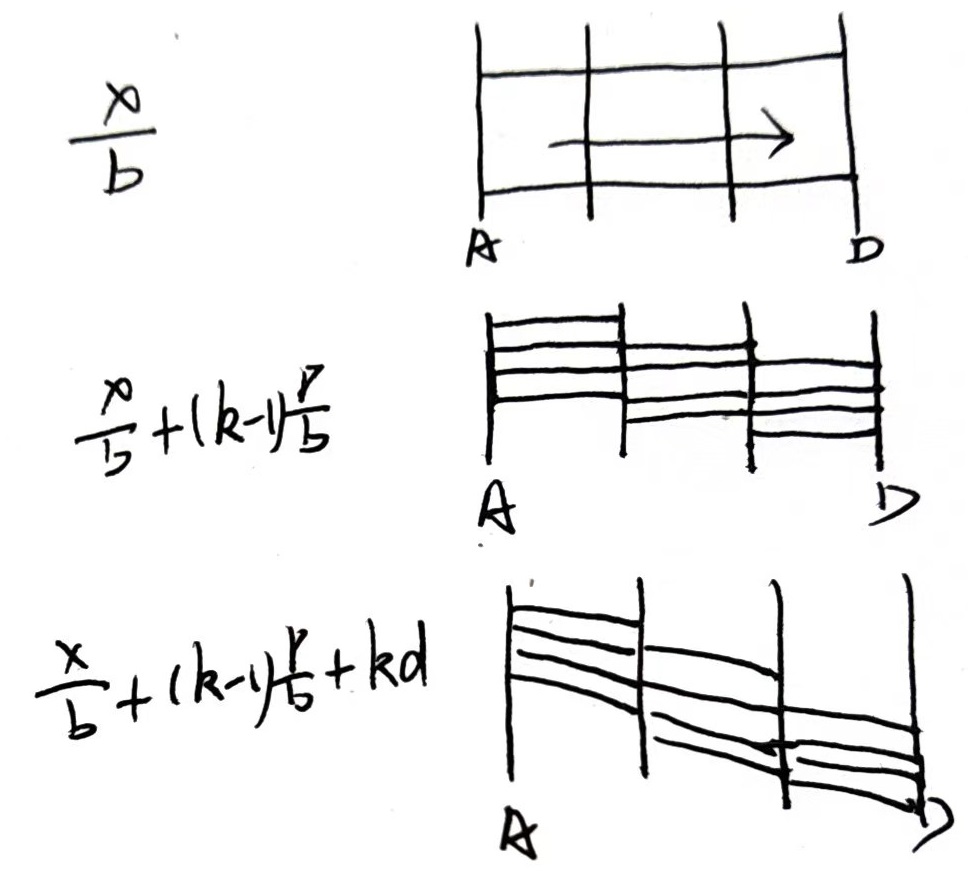 x/b
A D
x/b + (k-1)p/b
A D
x/b + (k-1)p/b + kd
A D